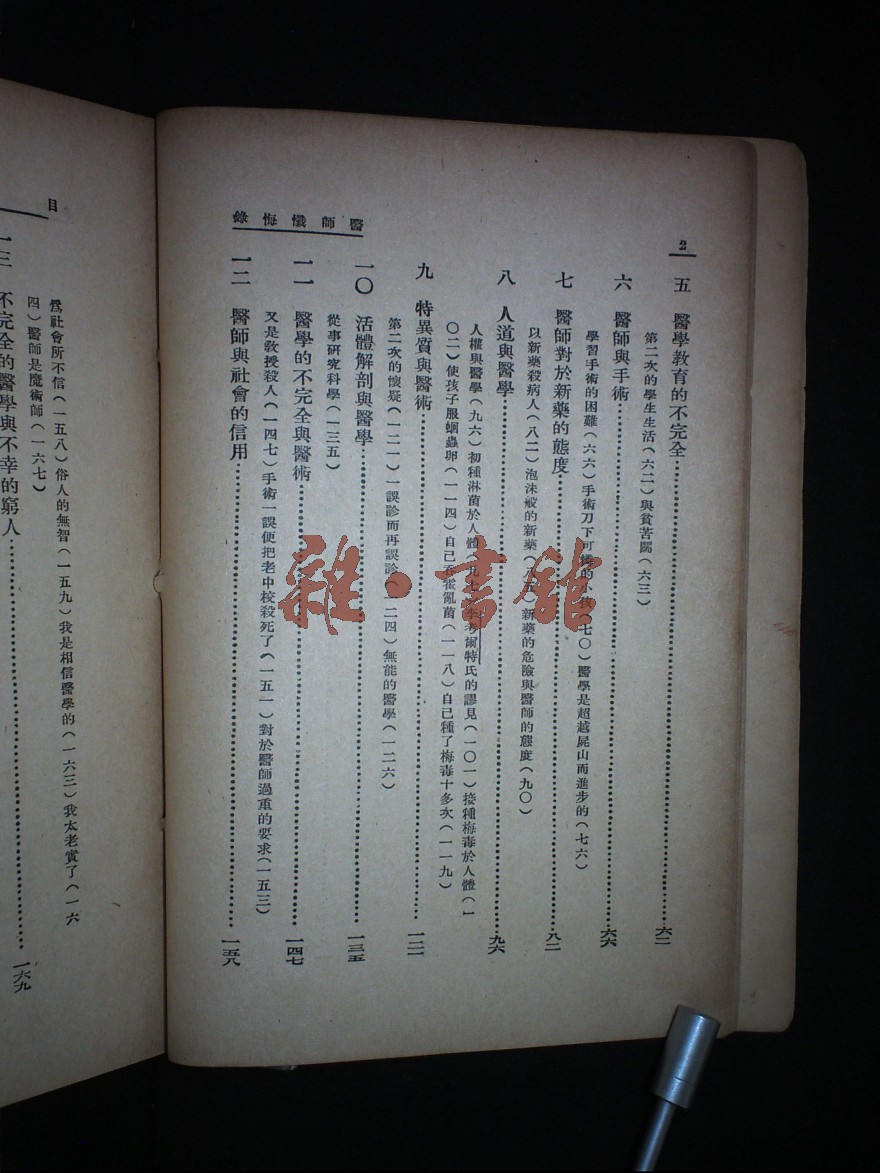 2
醫師懺悔錄
五　醫學教育的不完全……六二
第二次的學生生活(六二)與貧苦鬭(六三)
六　醫師與手術……六六
學習手術的困難(六六)手術刀下可憐的小孩(七〇)醫學是超越屍山而進步的(七六)
七　醫師對於新藥的態度……八二
以新藥殺病人(八二)泡沫般的新藥(八五)新藥的危險與醫師的態度(九〇)
八　人道與醫學……九六
人權與醫學(九六)初種淋菌於人體(九七)考爾特氏的謬見(一〇一)接種梅毒於人體(一
〇二)使孩子服蛔蟲卵(一一四)自己霍亂菌(一一八)自己種了梅毒十多次(一一九)
九　特異質與醫術……一二一
第二次的懷疑(一二一)一誤診而再誤診(一二四)無能的醫學(一二六)
一〇　活體解剖與醫學……一三五
從事研究科學(一三五)
一一　醫學的不完全與醫術……一四七
又是教授殺人(一四七)手術一誤便把老中校殺死了(一五一)對於醫師過重的要求(一五三)
一二　醫師與社會的信用……一五八
目
爲社會所不信(一五八)俗人的無智(一五九)我是相信醫學的(一六三)我太老實了(一六
四)醫師是魔術師(一六七)
一三　不完全的醫學與不幸的窮人……一六九
雜·書館